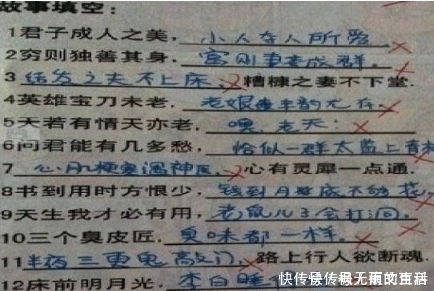 故事填空：
1君子成人之美，小人夺人所爱
2穷则独善其身，富则妻妾成群
3结发之夫不上床，糟糠之妻不下堂.
4英雄宝刀未老，老娘风韵尤存.
5天若有情天亦老，嘿，老天
6问君能有几多愁，恰似一群太监上青楼
7心肌梗塞遇神医，心有灵犀一点通.
8书到用时方恨少，钱到月底不够花.
9天生我才必有用，老鼠儿子会打洞.
10三个臭皮匠.臭味都一样.
11半夜三更鬼敲门，路上行人欲断魂.
12床前明月光.李白睡
快传号/传最无雨的生活